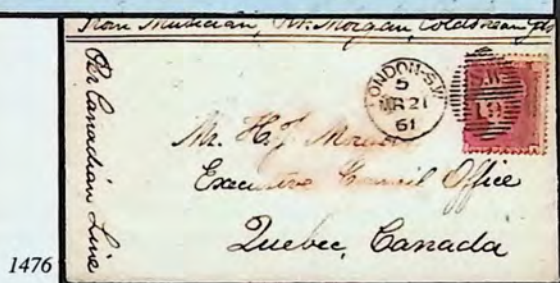 From Musician, Wm. Morgan, Coldstream Gds
Per Canadian Line
LONDON-S.W
5
MR 21
61
Mr. H. J. Morgan
Executive Council Office
Quebec, Canada
1476